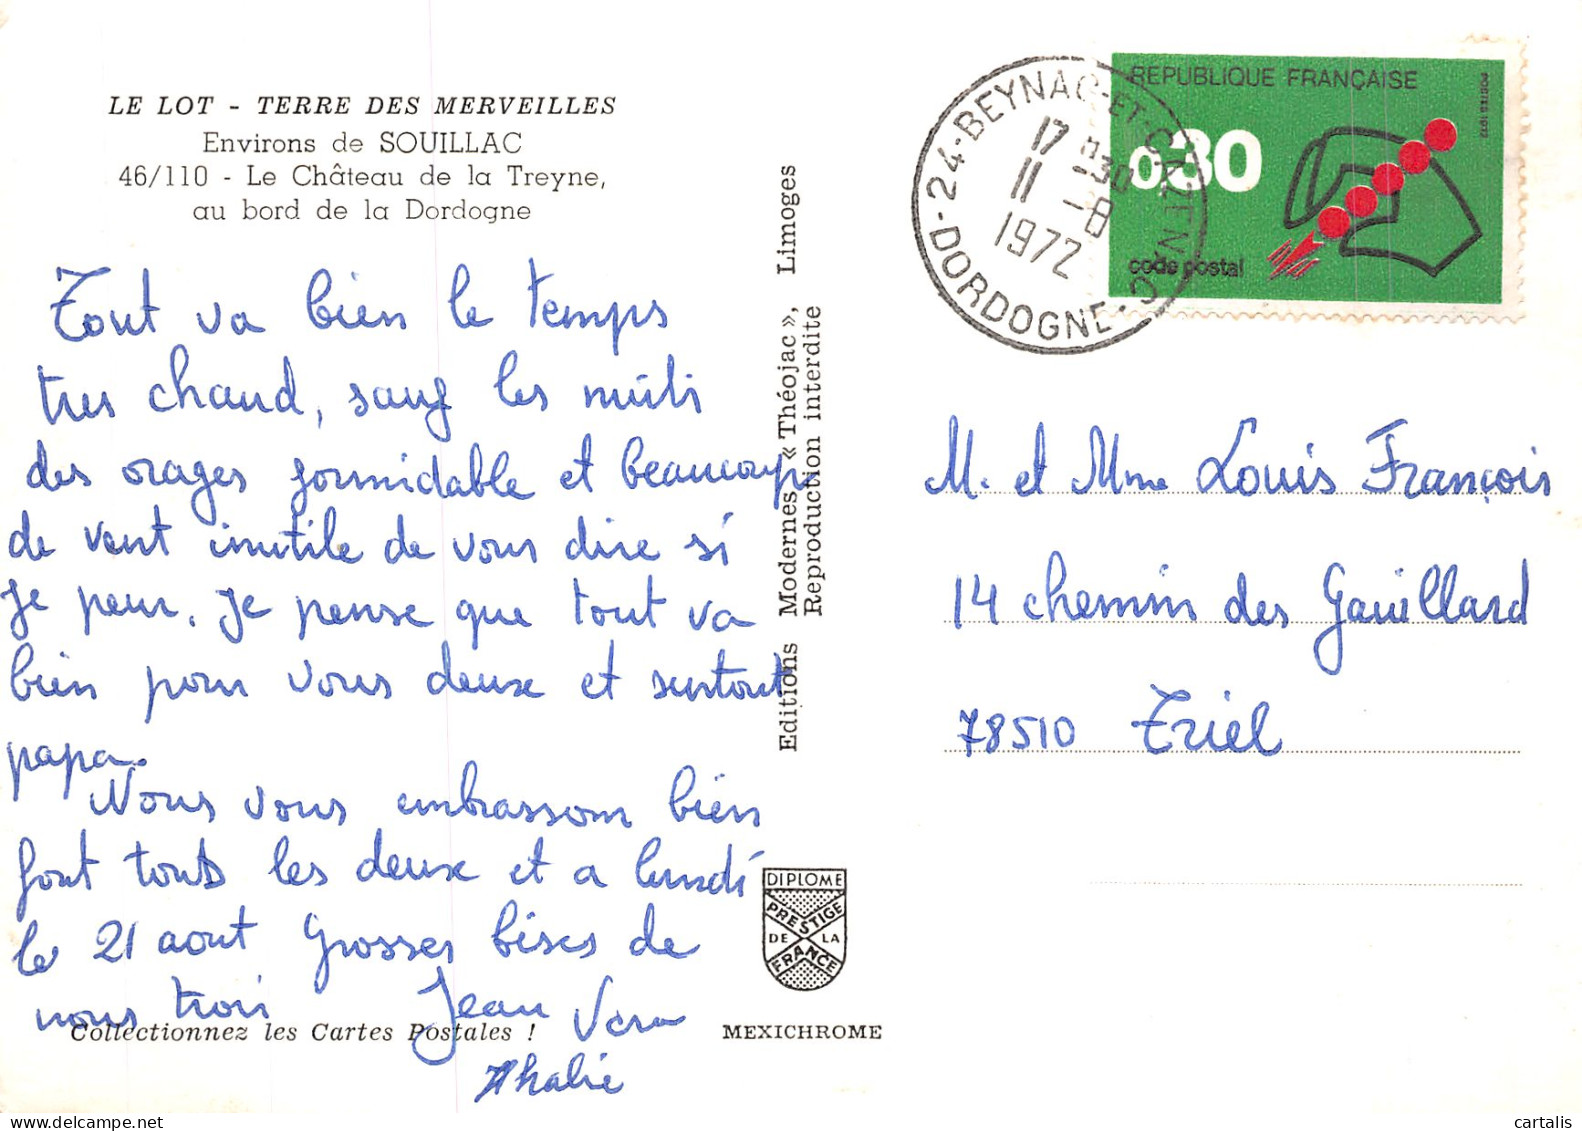 LE LOT - TERRE DES MERVEILLES
Environs de SOUILLAC
46/110 - Le Château de la Treyne,
au bord de la Dordogne
Tout va bien le temps
tres chaud, sauf les nuits
des orages formidable et beaucoup
de vent inutile de vous dire si
je peur. Je pense que tout va
bien pour vous deux et surtout
papa.
Nous vous embrassons bien
fort touts les deux et a lundi
le 21 aout Grosses bises de
nous trois Jean Vera
Collectionnez les Cartes Postales !
MEXICHROME
Editions Modernes « Théojac », Limoges
Reproduction interdite
DIPLOME
PRESTIGE
DE LA
FRANCE
24-BEYNAC-ET-CAZENAC
17 H30
11 -8
1972
DORDOGNE
REPUBLIQUE FRANÇAISE
POSTES 1972
0,30
code postal
M. et Mme Louis François
14 chemin des Gaillard
78510 Triel
cartalis